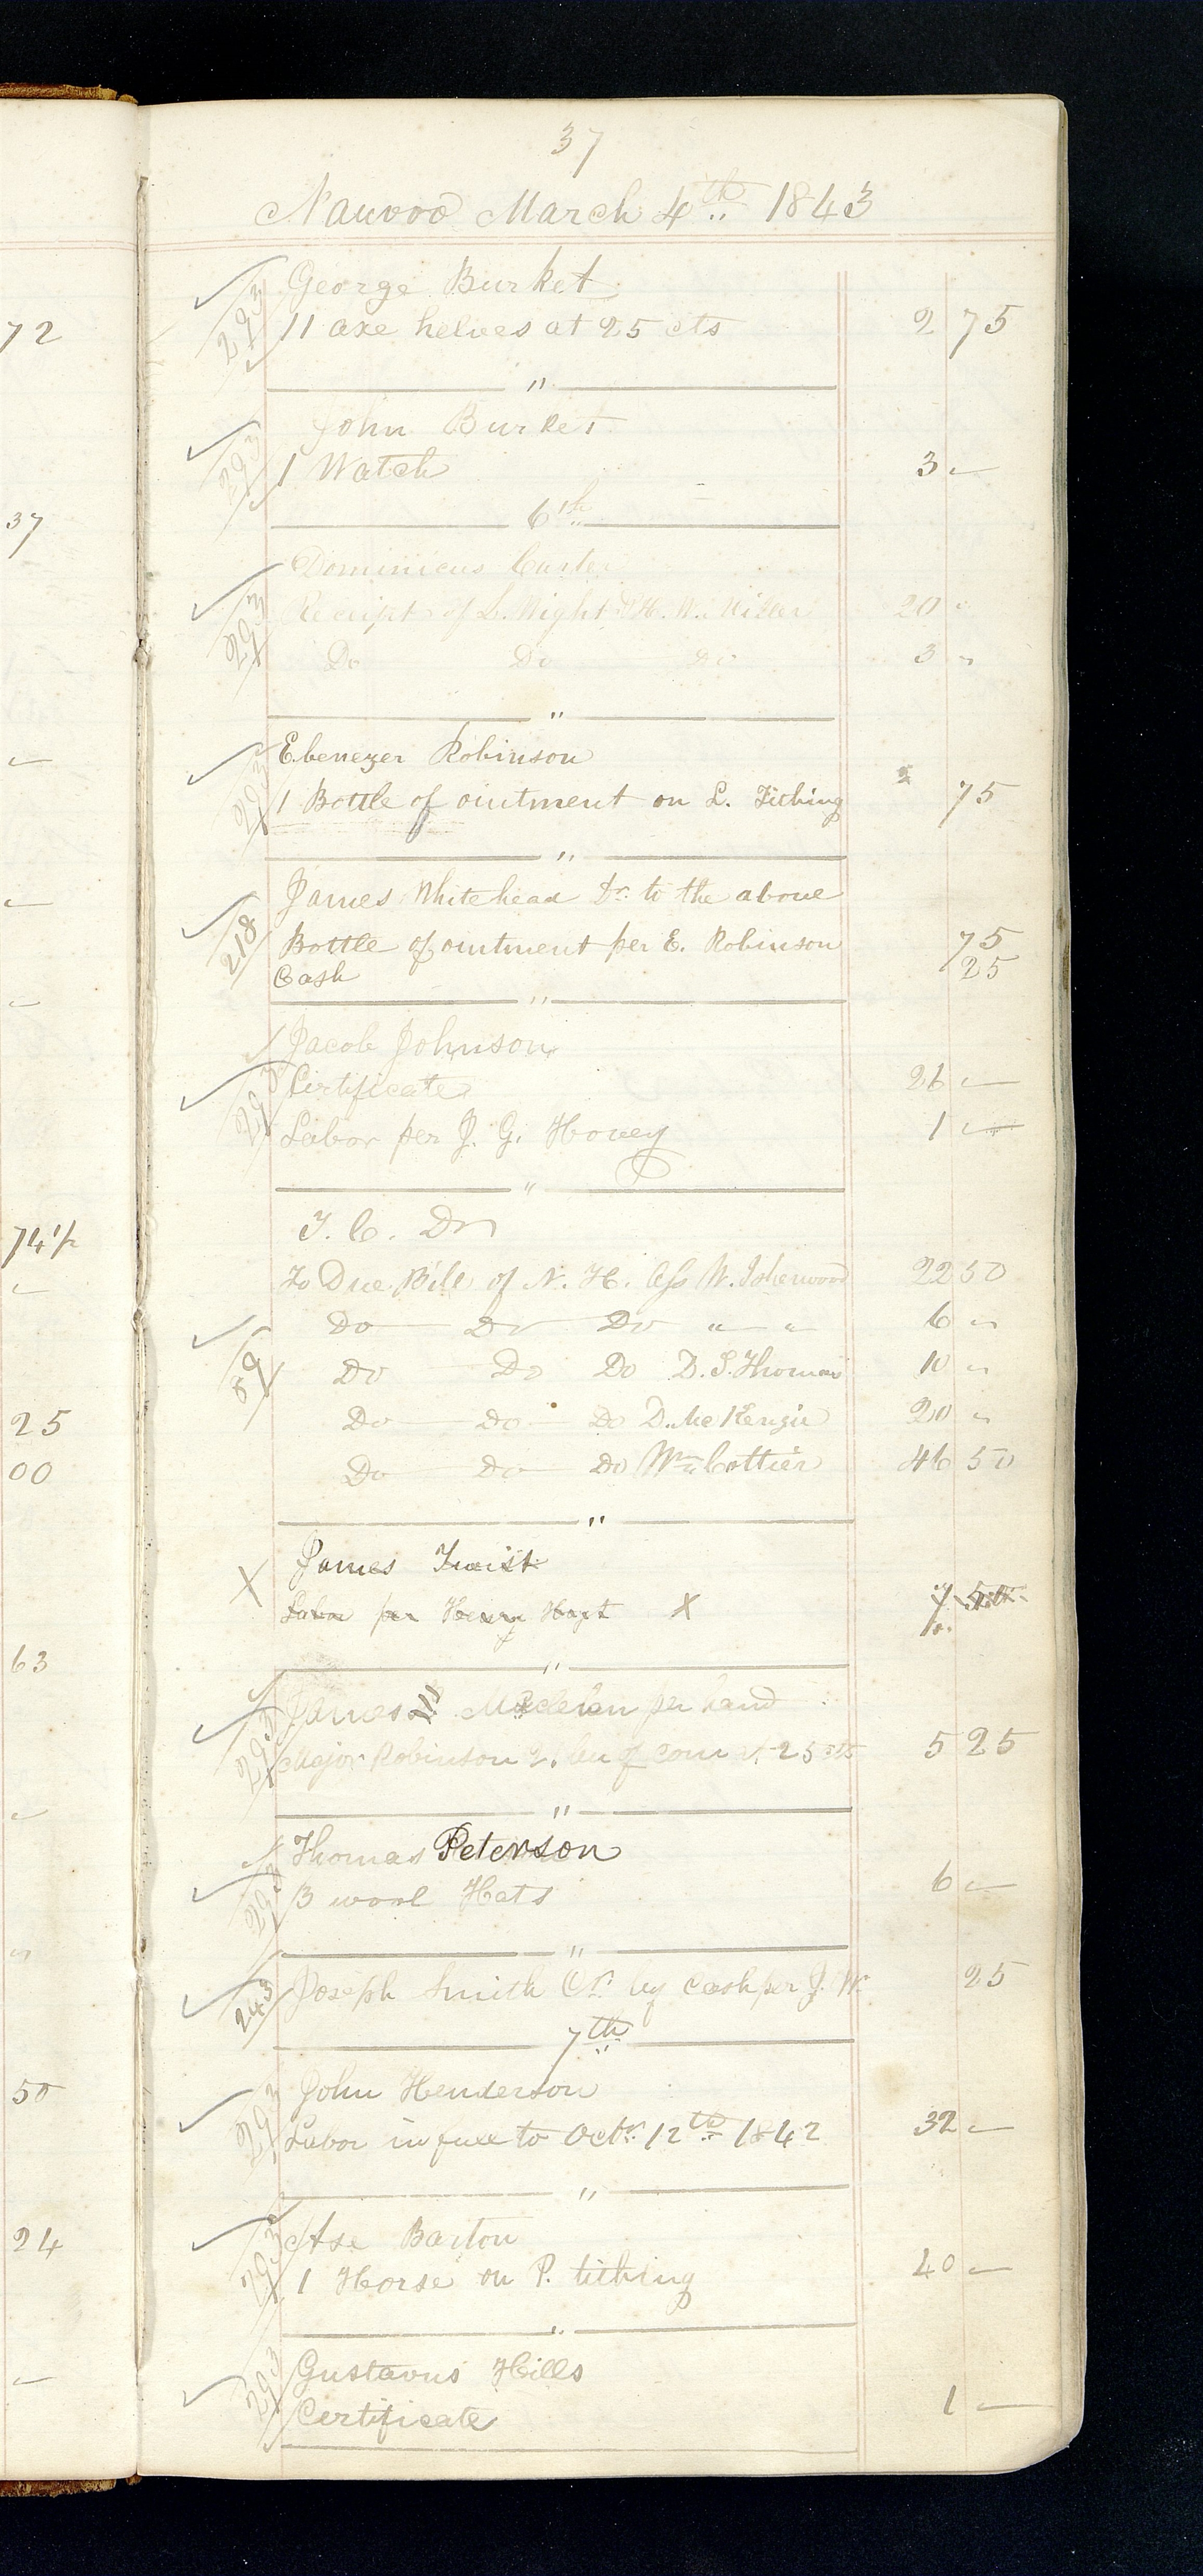 37
Nauvoo March 4th 1843
72
George Burket
293
11 axe helves at 25 cts 2 75
"
John Burket
293
1 Watch 3 —
37
6th
Dominicus Carter
293
Receipt of L. Wight & H. W. Miller 20 "
Do Do Do 3 "
"
Ebenezer Robinson
293
1 Bottle of ointment on L. Tithing 75
"
James Whitehead Dr. to the above
218
Bottle of ointment per E. Robinson 75
Cash 25
"
Jacob Johnson
293
Certificate 26 —
Labor per J. G. Hovey 1 —
"
T. C. Dr
74 1/2
To Due Bill of N. H. Ass W. Isherwood 22 50
Do Do Do " " 6 "
89
Do Do Do D. S. Thomas 10 "
Do Do Do D. McKenzie 20 "
25
Do Do Do Wm Cottier 46 50
00
"
X James Twist
Labor per Henry Hoyt X 7 50
63
"
James Macleran per hand
293
Major Robinson of corn 25 cts 5 25
"
Thomas Peterson
293
3 wool Hats 6 —
"
243
Joseph Smith Cr. by cash per J. W. 25
7th
John Henderson
50
293
Labor in full to Octr. 12th 1842 32 —
"
Asa Barton
24
293
1 Horse on P. tithing 40 —
"
Gustavus Hills
293
Certificate 1 —